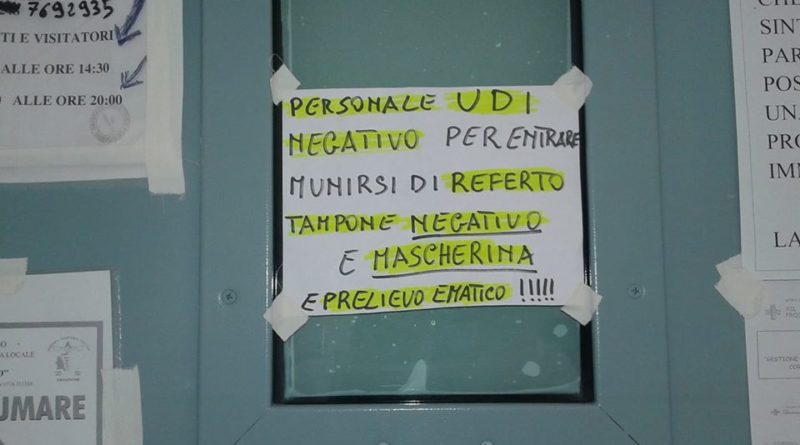 7692935
TI E VISITATORI
ALLE ORE 14:30
ALLE ORE 20:00
PERSONALE UDI
NEGATIVO PER ENTRARE
MUNIRSI DI REFERTO
TAMPONE NEGATIVO
E MASCHERINA
E PRELIEVO EMATICO !!!!!
UMARE
SINT
PAR
POS
UNA
PRO
IMM
LA